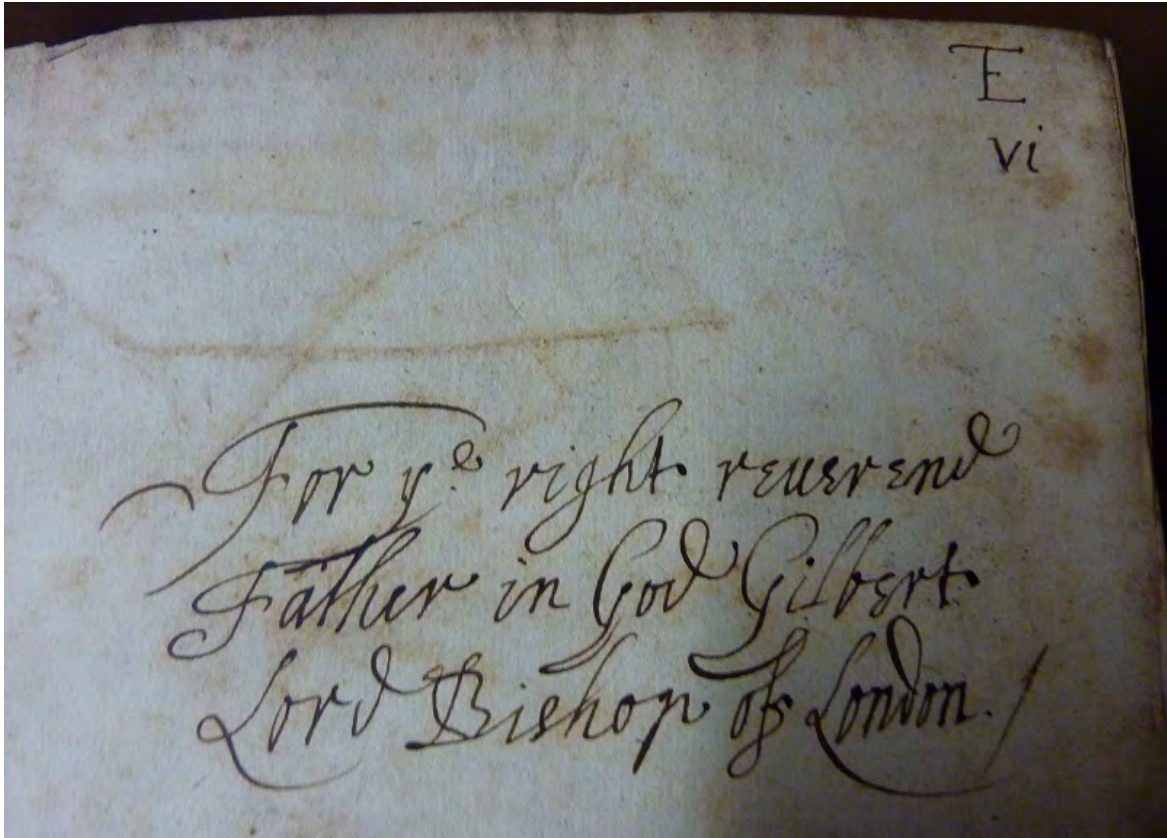 E
vi
For yᵉ right reuerend
Father in God Gilbert
Lord Bishop of London./